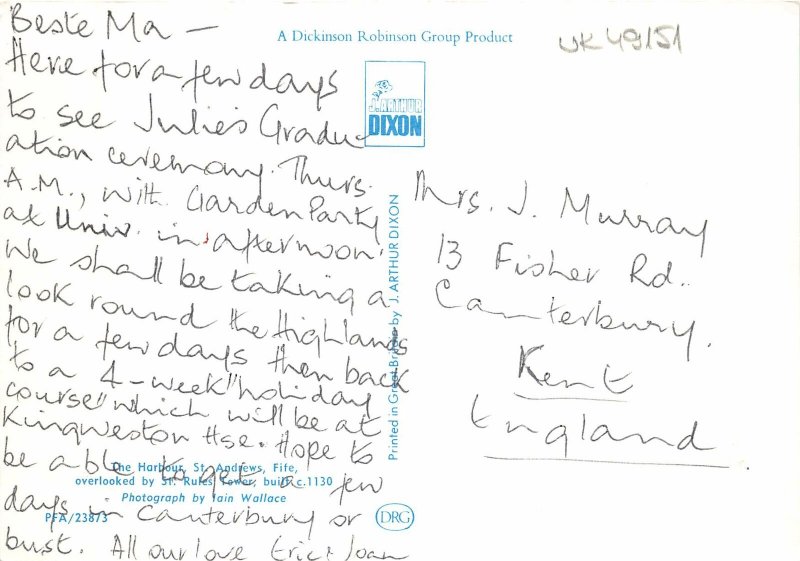 Beste Ma —
Here for a few days
to see Julie's Gradu-
ation ceremony. Thurs.
A.M., with Garden Party
at Univ. in afternoon.
We shall be taking a
look round the Highlands
for a few days then back
to a 4-week "holiday
course" which will be at
Kingweston Hse. Hope to
be able to get a few
days in Canterbury or
bust. All our love Eric & Joan
A Dickinson Robinson Group Product
UK49151
J. ARTHUR
DIXON
Printed in Great Britain by J. ARTHUR DIXON
Mrs. J. Murray
13 Fisher Rd.
Canterbury.
Kent
England
The Harbour, St. Andrews, Fife,
overlooked by St. Rules Tower, built c.1130
Photograph by Iain Wallace
PFA/23873
DRG